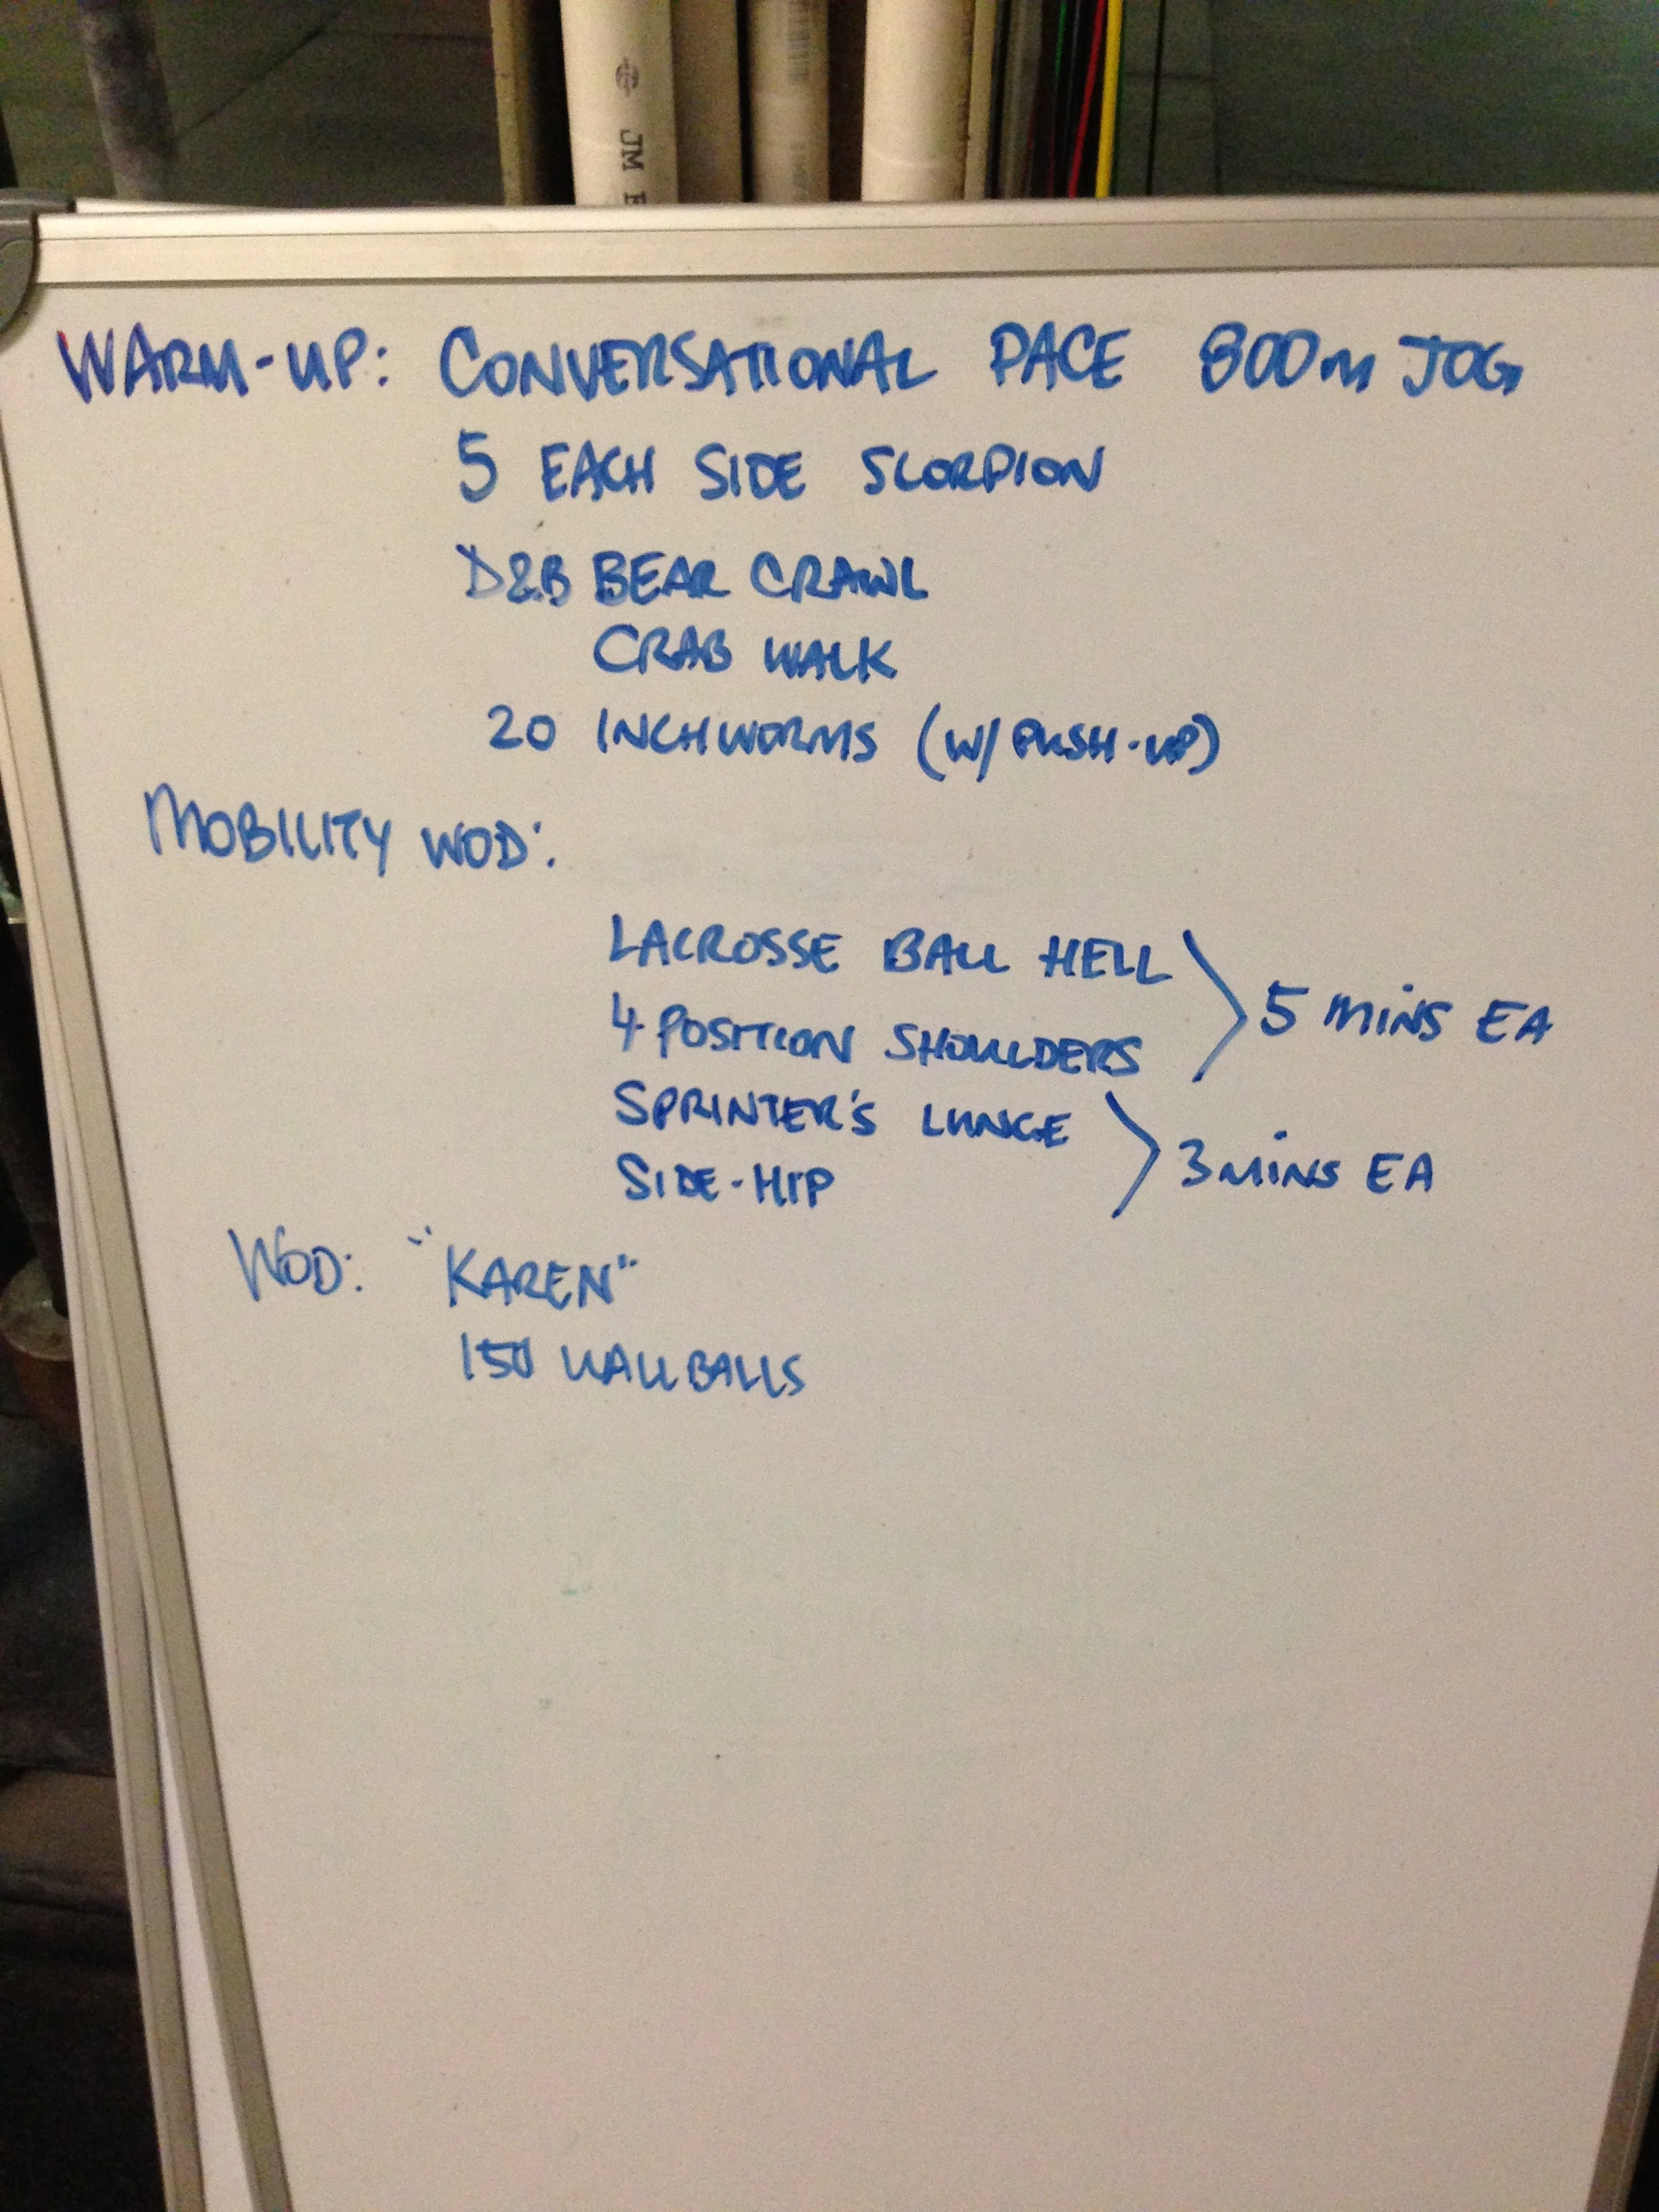 JM E
WARM-UP: CONVERSATIONAL PACE 800m JOG
5 EACH SIDE SCORPION
D&B BEAR CRAWL
CRAB WALK
20 INCHWORMS (W/ PUSH-UP)
MOBILITY WOD:
LACROSSE BALL HELL
4 POSITION SHOULDERS
5 MINS EA
SPRINTER'S LUNGE
SIDE-HIP
3 MINS EA
WOD: "KAREN"
150 WALLBALLS